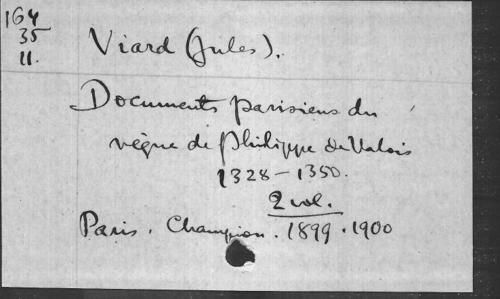 164
35
11.
Viard (Jules).
Documents parisiens du
règne de Philippe de Valois
1328-1350.
2 vol.
Paris. Champion. 1899.1900